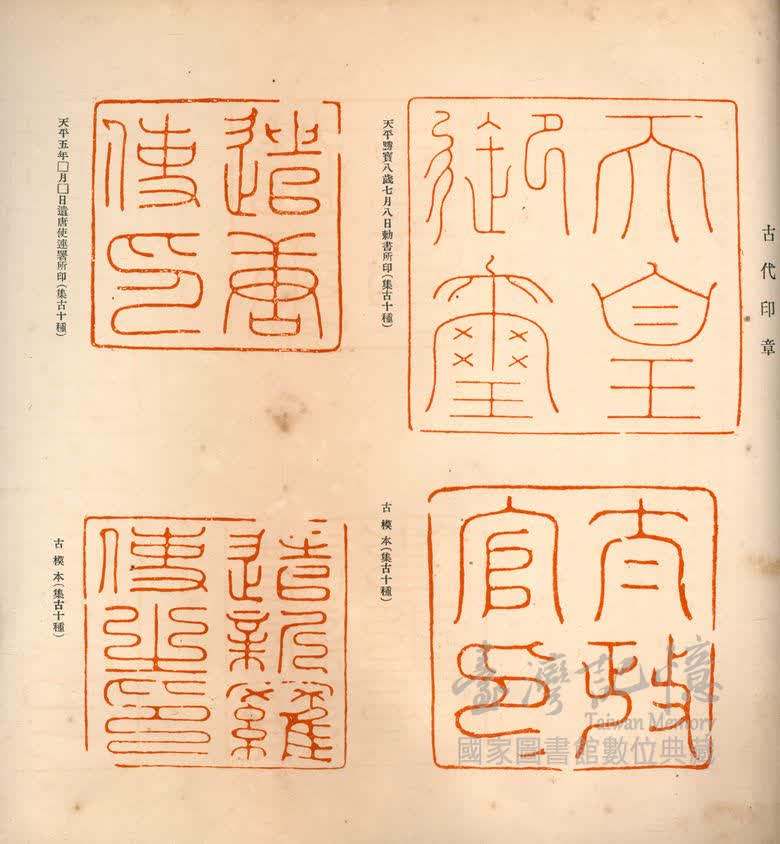 古代印章
天皇
御璽
天平勝寶八歲七月八日勅書所印(集古十種)
遣唐
使印
天平五年□月□日遣唐使連署所印(集古十種)
太政
官印
古模本(集古十種)
遣新羅
使之印
古模本(集古十種)
臺灣記憶
Taiwan Memory
國家圖書館數位典藏